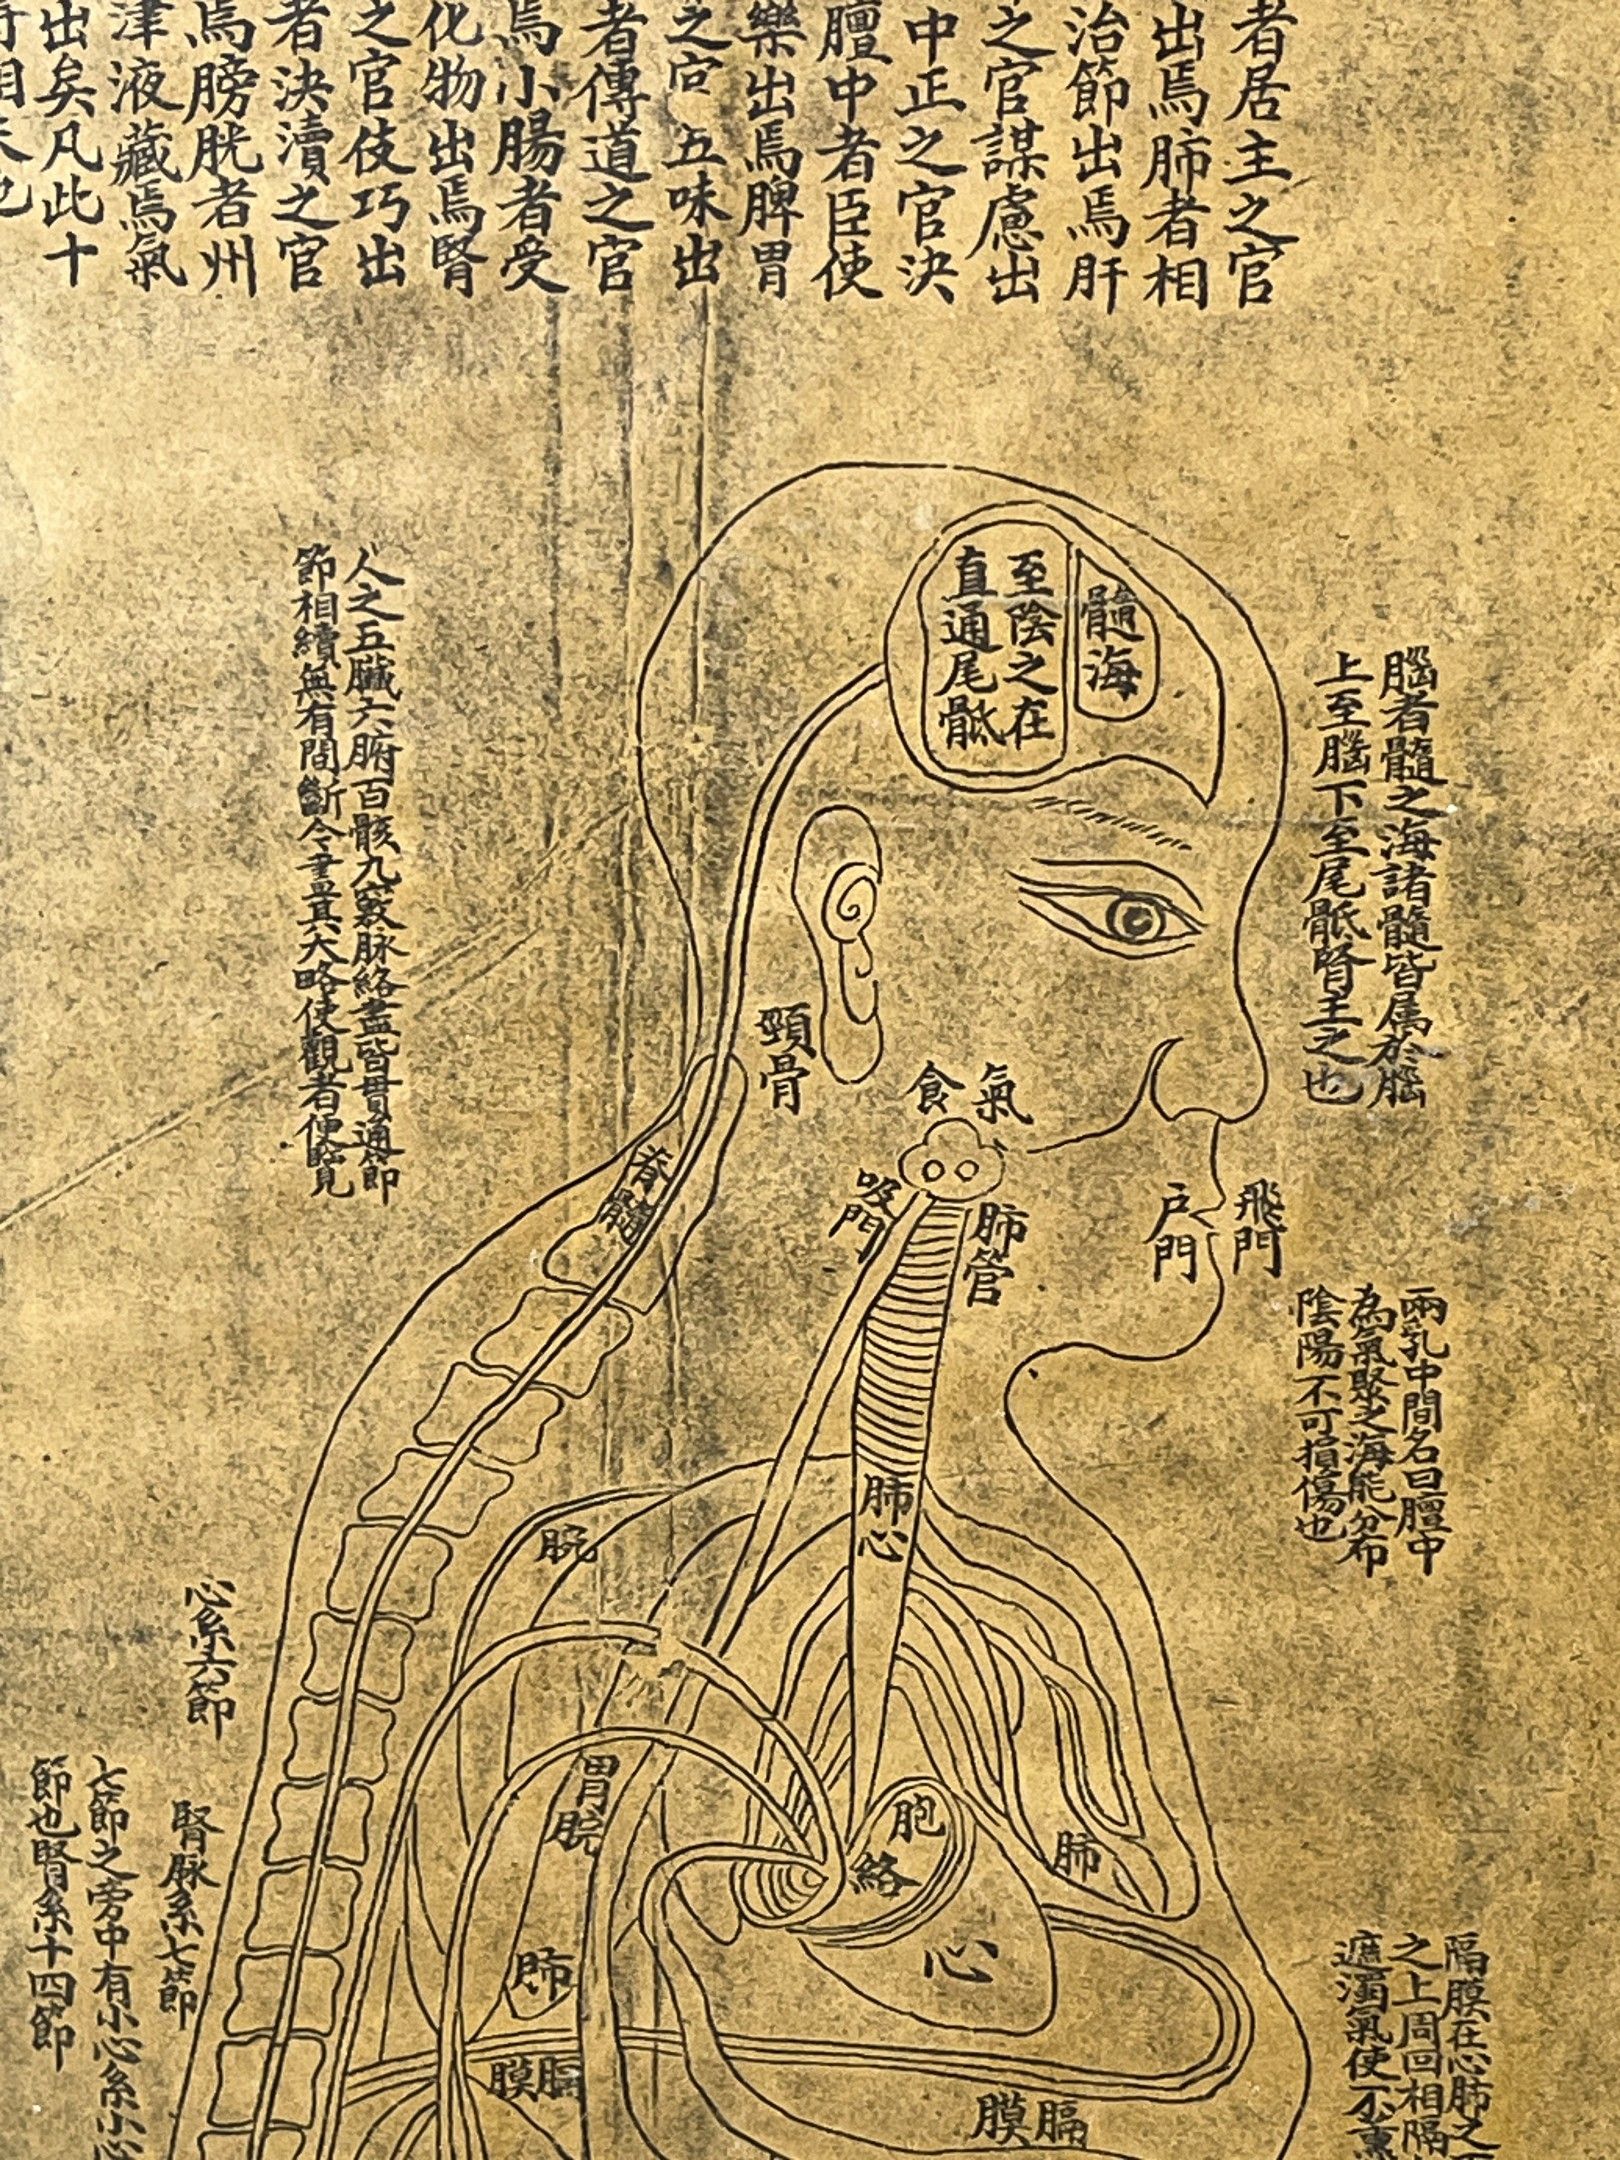 者居主之官
出焉肺者相
治節出焉肝
之官謀慮出
中正之官決
膻中者臣使
樂出焉脾胃
之官五味出
者傳道之官
焉小腸者受
化物出焉腎
之官伎巧出
者決瀆之官
焉膀胱者州
津液藏焉氣
出矣凡此十
髓海
至陰之在
直通尾骶
腦者髓之海諸髓皆属於腦
上至腦下至尾骶腎主之也
人之五臟六腑百骸九竅脉絡盡皆貫通節
節相續無有間斷今畫其大略使觀者便覽
頸骨
氣
食
脊髓
吸門
肺管
飛門
戶門
兩乳中間名曰膻中
為氣聚之海能分布
陰陽不可損傷也
肺心
脘
心系六節
胃脘
胞絡
肺
腎脉系七節
七節之旁中有小心系小心
節也腎系十四節
心
肺
膈膜
膈膜
隔膜在心肺之
之上周回相隔
遮濁氣使不熏